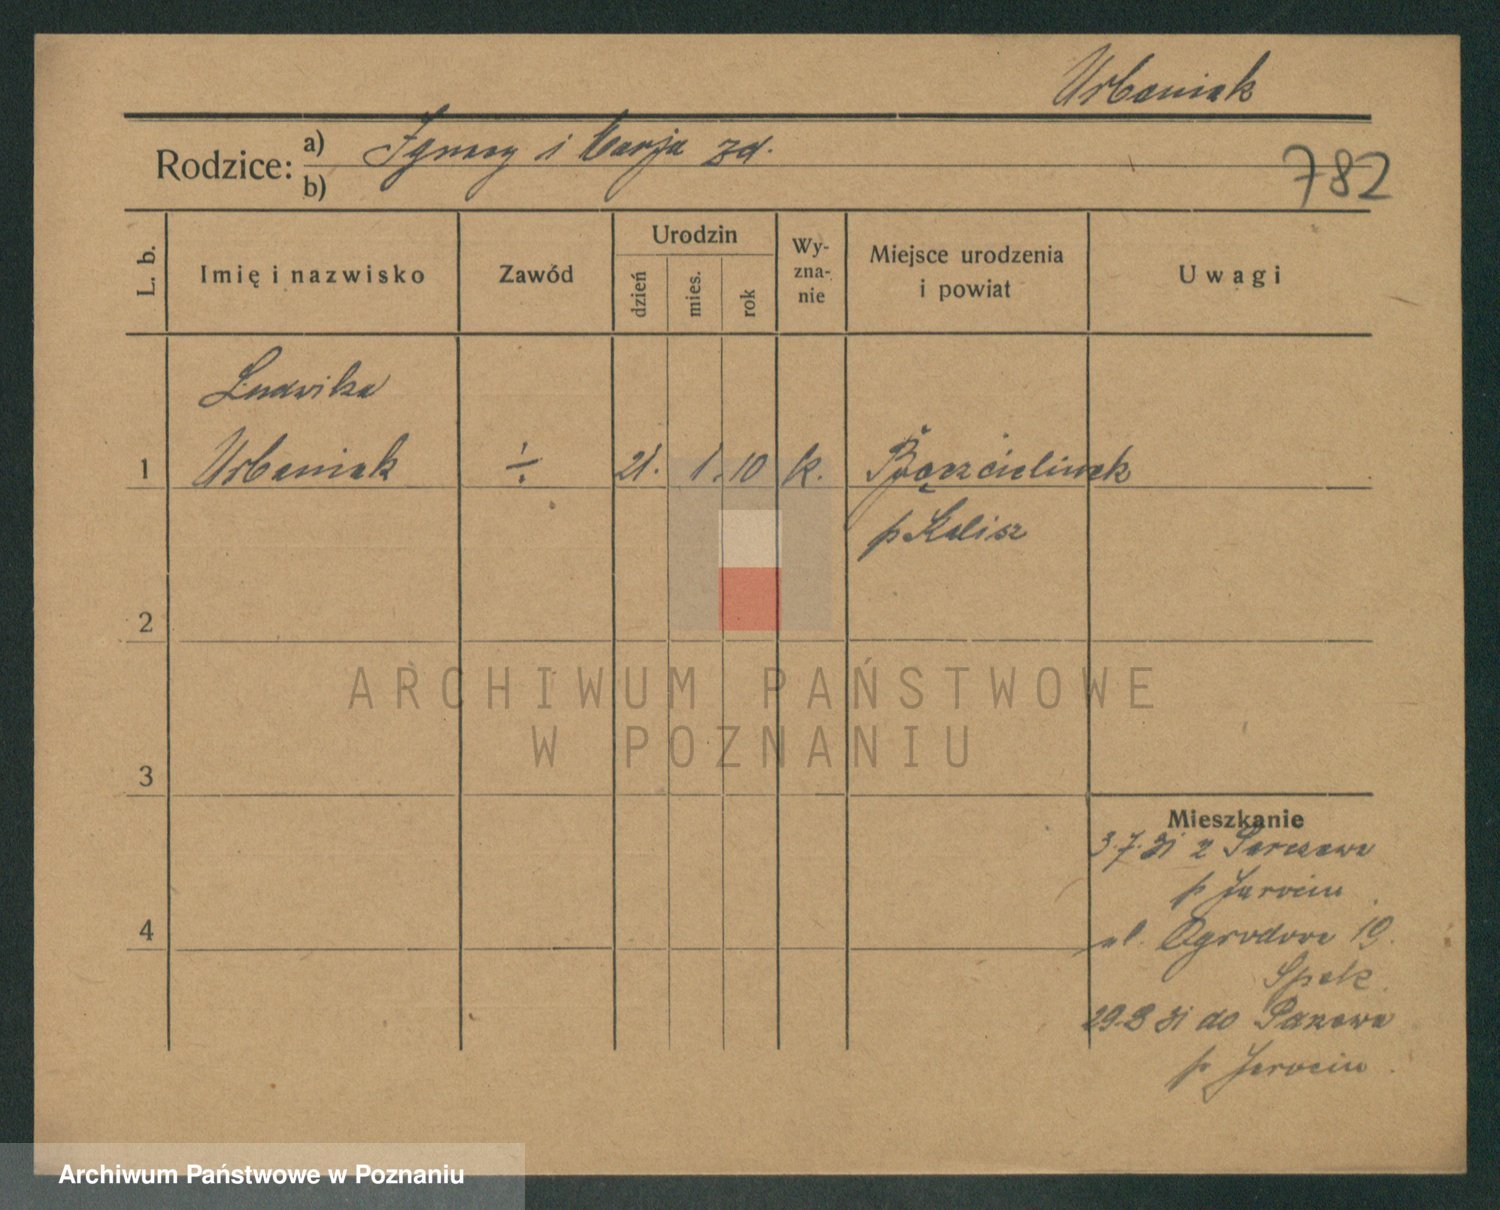 Urbaniak
Rodzice: a) Ignacy i Marja zd.
b)
782
L. b.
Imię i nazwisko
Zawód
Urodzin
dzień
mies.
rok
Wy-
zna-
nie
Miejsce urodzenia
i powiat
Uwagi
Ludwika
1 Urbaniak ./. 21. 1. 10 k.
p Kalisz
2
3
4
Mieszkanie
3.7.31 z
p Jarocin
ul. Ogrodowa 19.
29.8 31 do
p Jarocin.
ARCHIWUM PAŃSTWOWE
W POZNANIU
Archiwum Państwowe w Poznaniu